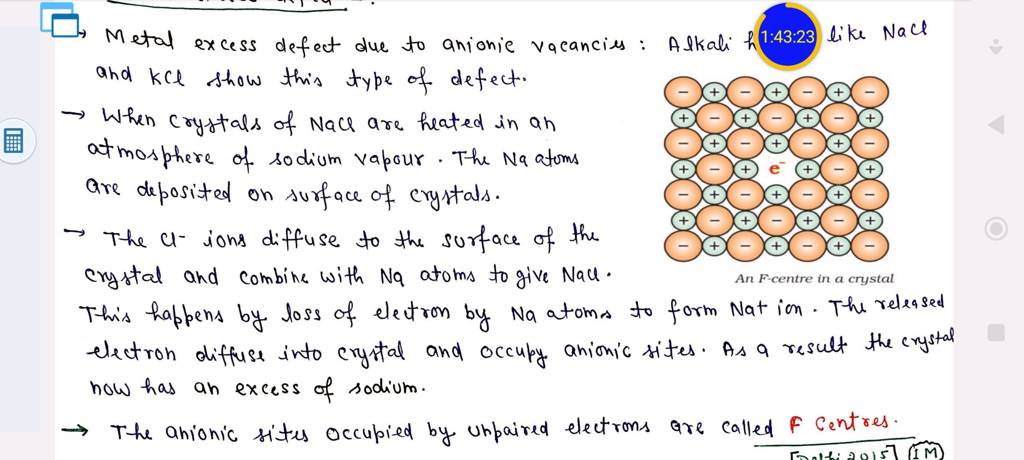 → Metal excess defect due to anionic vacancies : Alkali like NaCl
1:43:23
and KCl show this type of defect.
→ When crystals of NaCl are heated in an
atmosphere of sodium vapour . The Na atoms
are deposited on surface of crystals.
→ The Cl- ions diffuse to the surface of the
crystal and combine with Na atoms to give NaCl.
This happens by loss of electron by Na atoms to form Na+ ion . The released
electron diffuse into crystal and occupy anionic sites. As a result the crystal
now has an excess of sodium.
→ The anionic sites occupied by unpaired electrons are called F Centres.
[Delhi 2015] (1M)
− + − + − + −
+ − + − + − +
− + − + − + −
+ − + e⁻ + − +
− + − + − + −
+ − + − + − +
− + − + − + −
An F-centre in a crystal